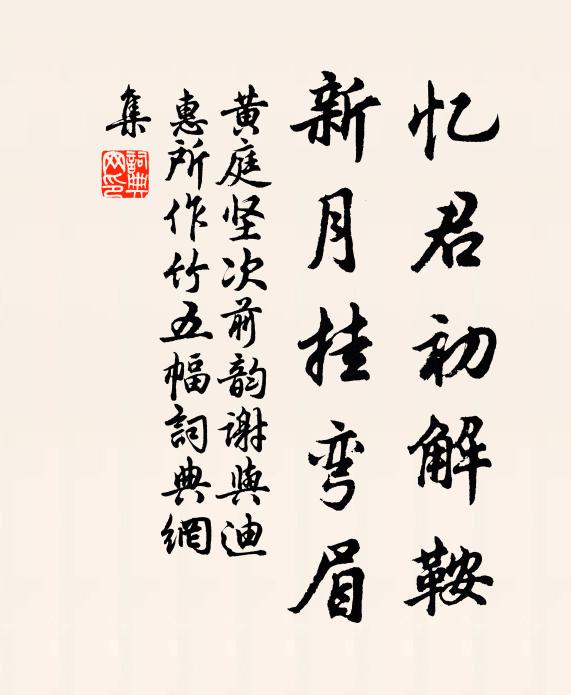 忆君初解鞍
新月挂弯眉
黄庭坚次前韵谢与迪
惠所作竹五幅詞典網
集
詞典
网印